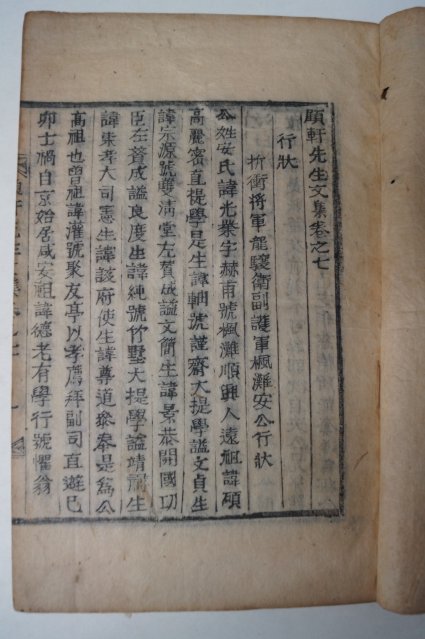 頤軒先生文集卷之七
行狀
折衝將軍龍驤衛副護軍楓灘安公行狀
公姓安氏諱光業字赫甫號楓灘順興人遠祖諱碩
高麗密直提學是生諱軸號謹齋大提學謚文貞生
諱宗源號雙淸堂左贊成謚文簡生諱景恭開國功
臣左贊成謚良度生諱純號竹墅大提學謚靖肅生
諱崇孝大司憲生諱該府使生諱尊道參奉是爲公
高祖也曾祖諱灌號聚友亭以孝薦拜副司直遊己
卯士禍自京始居咸安祖諱德老有學行號懼翁